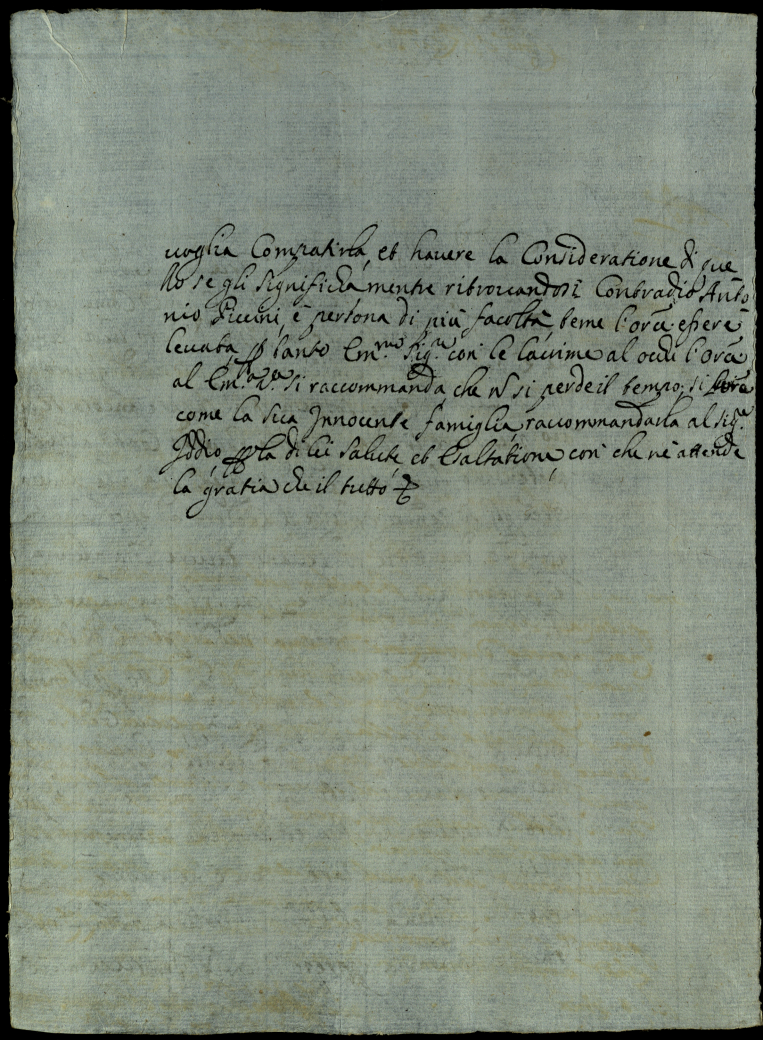 uoglia Compatirla, et hauere la Consideratione di que
llo se gli significha mentre ritrouandosi Contradio Anto
nio Piccini, è persona di più facoltà, teme l'orã essere
leuata, ꝑ tanto Em.mo Sig.re con le lacrime al ochi l'orã
al Em.za V.a si raccommanda che nõ si perde il tempo, si
come la sua Innocente famiglia, raccommandarla al Sig.re
Iddio, ꝑ la di lei salute, et Esaltatione, con che ne attende
la gratia che il tutto